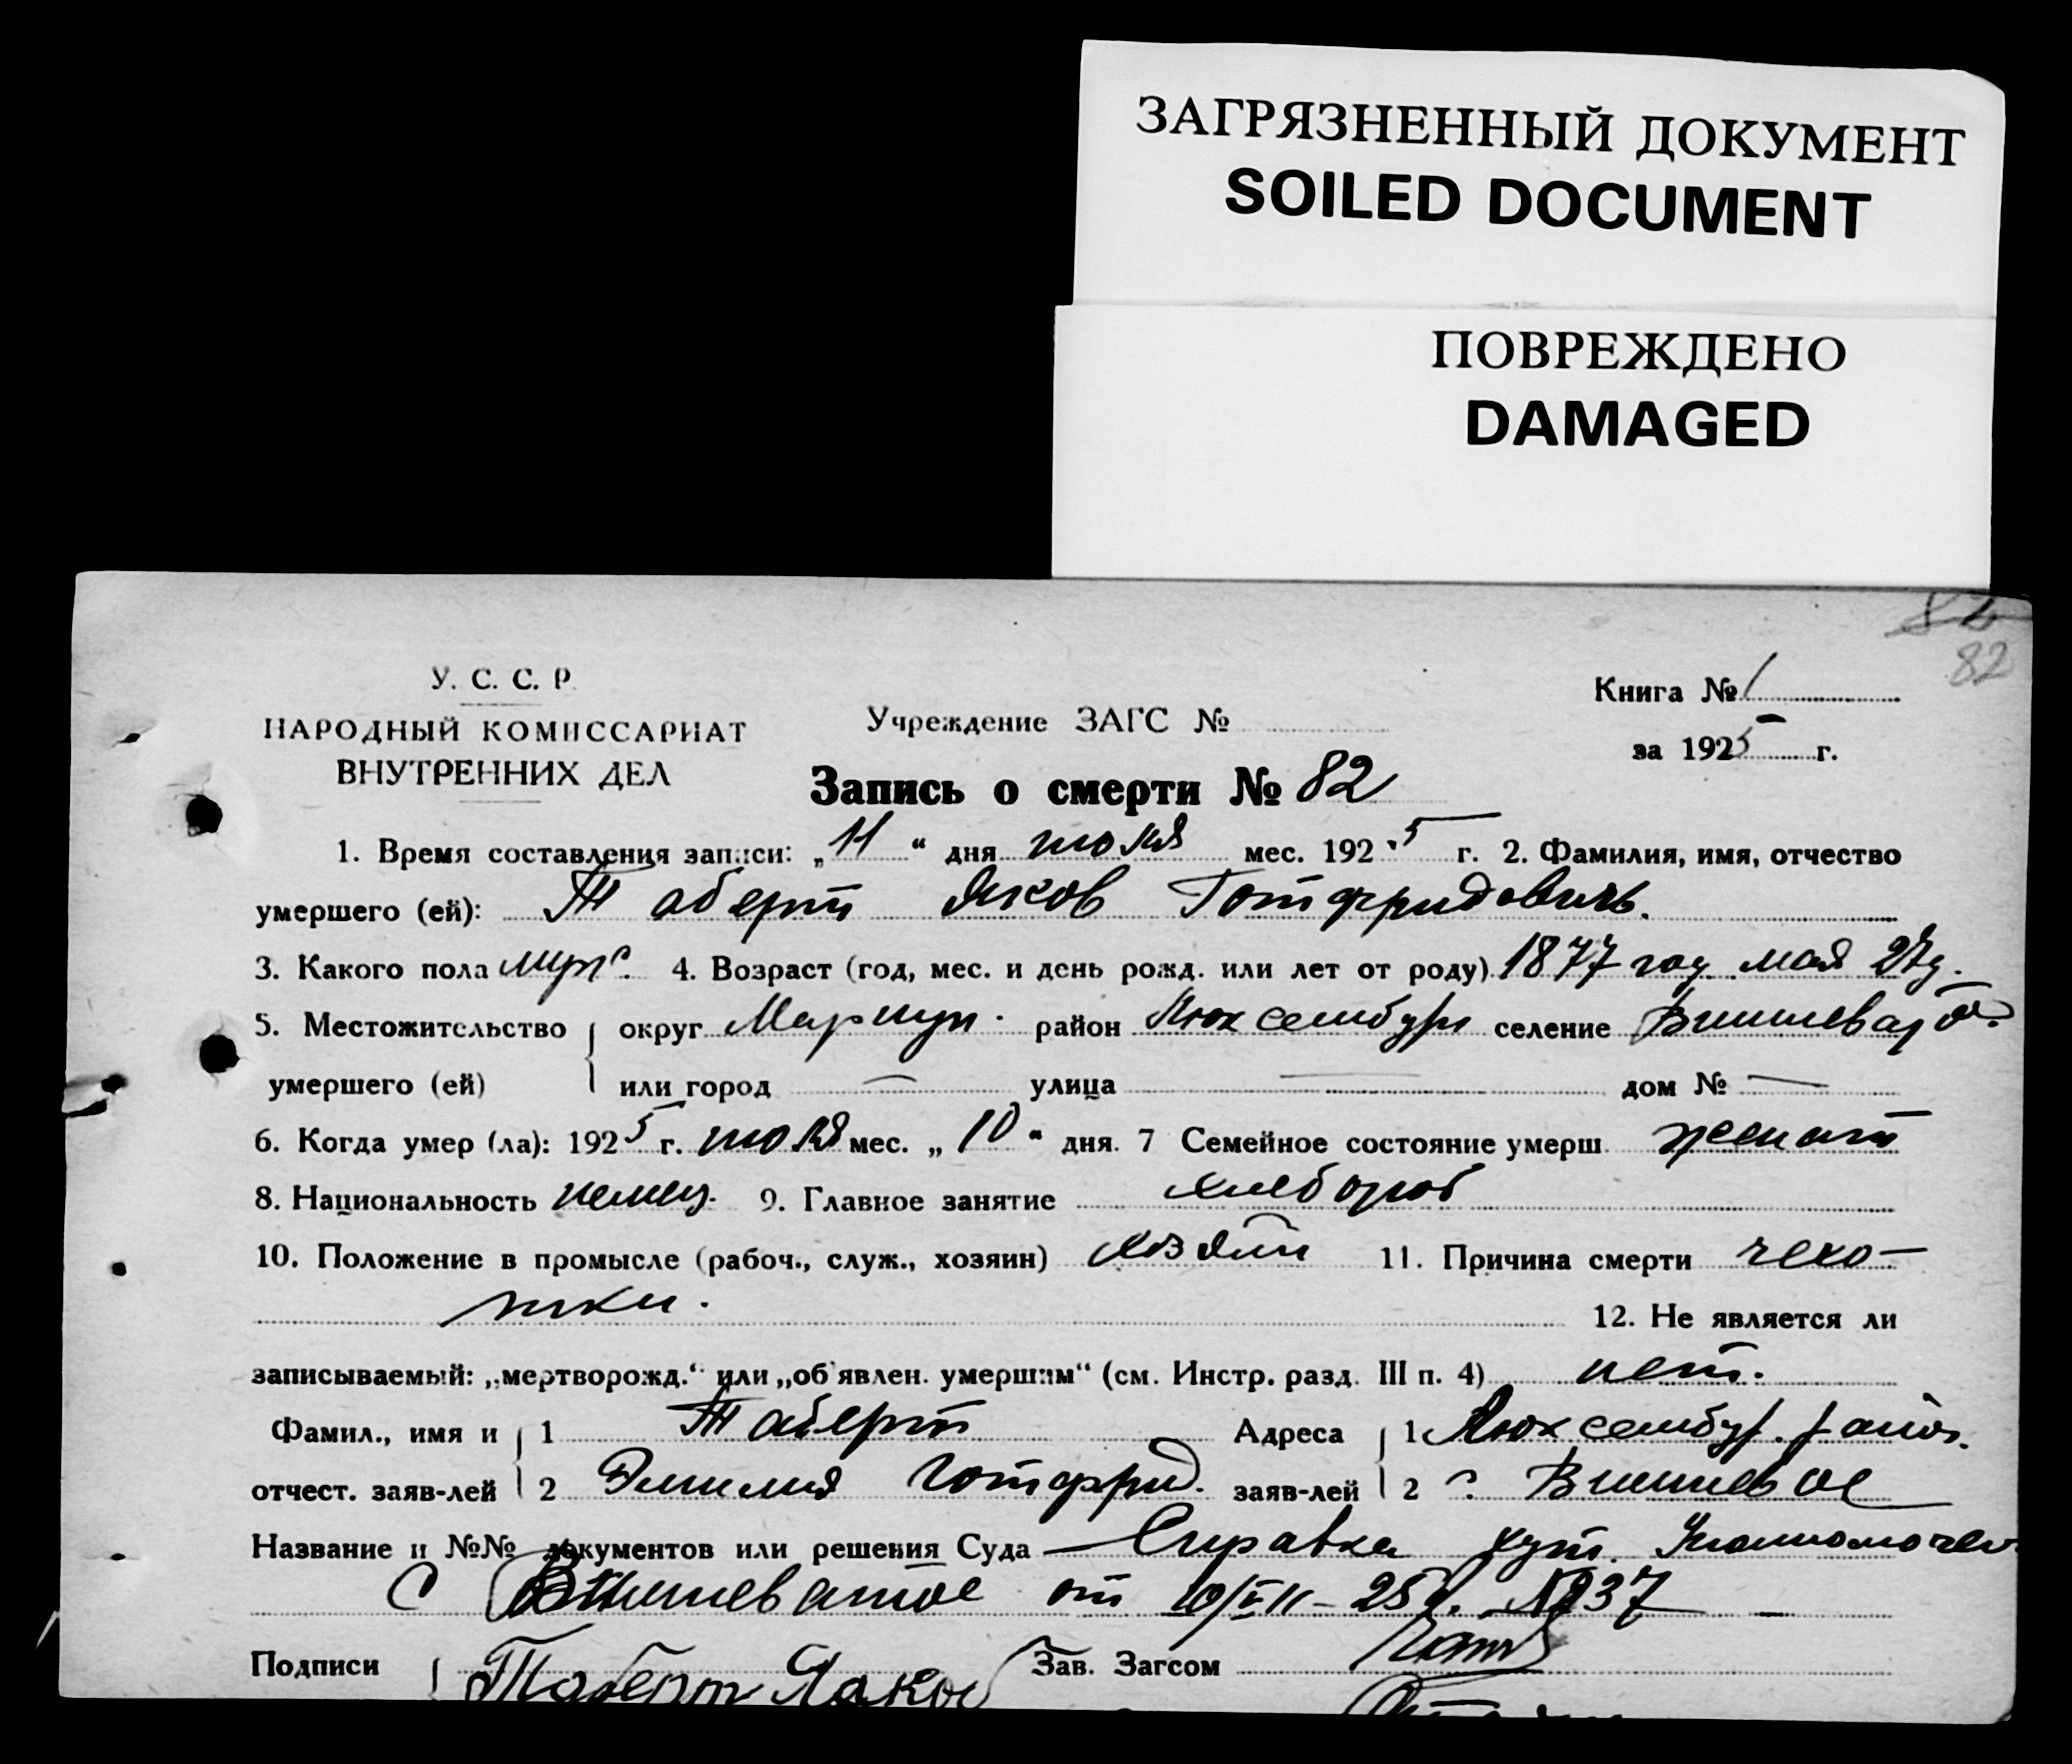 ЗАГРЯЗНЕННЫЙ ДОКУМЕНТ
SOILED DOCUMENT
ПОВРЕЖДЕНО
DAMAGED
82
82
У. С. С. Р.
НАРОДНЫЙ КОМИССАРИАТ
ВНУТРЕННИХ ДЕЛ
Учреждение ЗАГС №
Книга № 1
за 1925 г.
Запись о смерти № 82
1. Время составления записи: „11“ дня июля мес. 1925 г. 2. Фамилия, имя, отчество
умершего (ей): Таберт Яков Готфридовичь.
3. Какого пола муж. 4. Возраст (год, мес. и день рожд. или лет от роду) 1877 год мая 27д.
5. Местожительство округ Мариуп. район Люксембург селение Вишневат.
умершего (ей) или город — улица — дом № —
6. Когда умер (ла): 1925 г. июля мес. „10“ дня. 7 Семейное состояние умерш. женат
8. Национальность немец. 9. Главное занятие хлебороб
10. Положение в промысле (рабоч., служ., хозяин) хозяин 11. Причина смерти чехо-
тки.
12. Не является ли
записываемый: „мертворожд.“ или „об'явлен. умершим“ (см. Инстр. разд. III п. 4) нет.
Фамил., имя и 1 Таберт Адреса 1 Люксембург. район.
отчест. заяв-лей 2 Эмилия Готфрид. заяв-лей 2 с. Вишневое
Название и №№ документов или решения Суда — Справка хут. Уполномочен.
с Вишневатое от 10/VII - 25 г. № 37 —
Подписи Таберт Яков Зав. Загсом